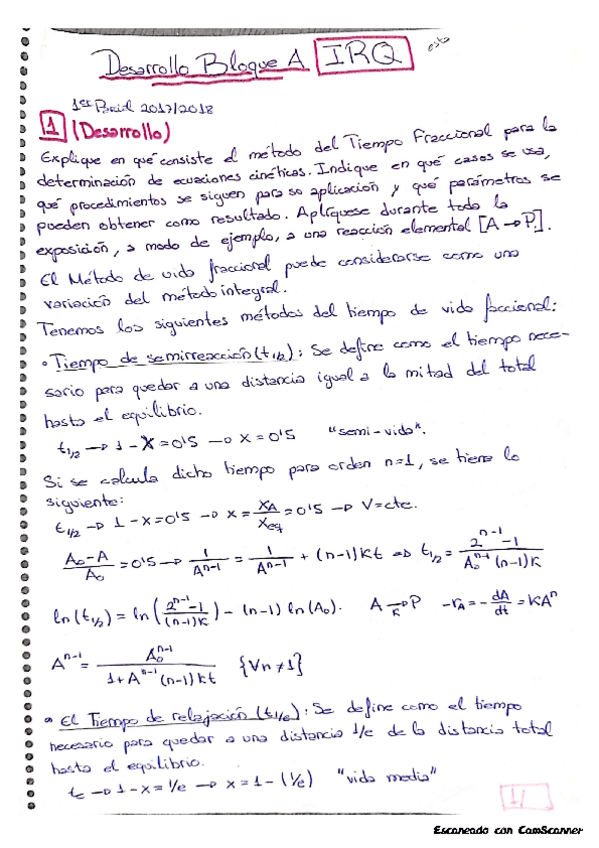 Desarrollo Bloque A IRQ esto
1er Parcial 2017/2018
1 (Desarrollo)
Explique en qué consiste el método del Tiempo Fraccional para la
determinación de ecuaciones cinéticas. Indique en qué casos se usa,
qué procedimientos se siguen para so aplicación y qué parámetros se
pueden obtener como resultado. Aplíquese durante toda la
exposición, a modo de ejemplo, a una reacción elemental [A→P].
El Método de vida fraccional puede considerarse como una
variación del método integral.
Tenemos los siguientes métodos del tiempo de vida faccional:
• Tiempo de semirreacción (t1/2): Se define como el tiempo nece-
sario para quedar a una distancia igual a la mitad del total
hasta el equilibrio.
t1/2 → 1 - X = 0'5 → x = 0'5 "semi-vida".
Si se calcula dicho tiempo para orden n=1, se tiene lo
siguiente:
t1/2 → 1 - x = 0'5 → x = XA/Xeq = 0'5 → V = cte.
A0-A/A0 = 0'5 → 1/A^n-1 = 1/A^n-1 + (n-1)Kt ⇒ t1/2 = 2^n-1 -1/A0^n-1 (n-1)K
ln(t1/2) = ln(2^n-1 -1/(n-1)K) - (n-1) ln(A0). A →K P -rA = - dA/dt = KA^n
A^n-1 = A0^n-1/1 + A^n-1 (n-1)Kt {∀n ≠ 1}
• El Tiempo de relajación (t1/e): Se define como el tiempo
necesario para quedar a una distancia 1/e de la distancia total
hasta el equilibrio.
te → 1 - x = 1/e → x = 1 - (1/e) "vida media"
1/
Escaneado con CamScanner